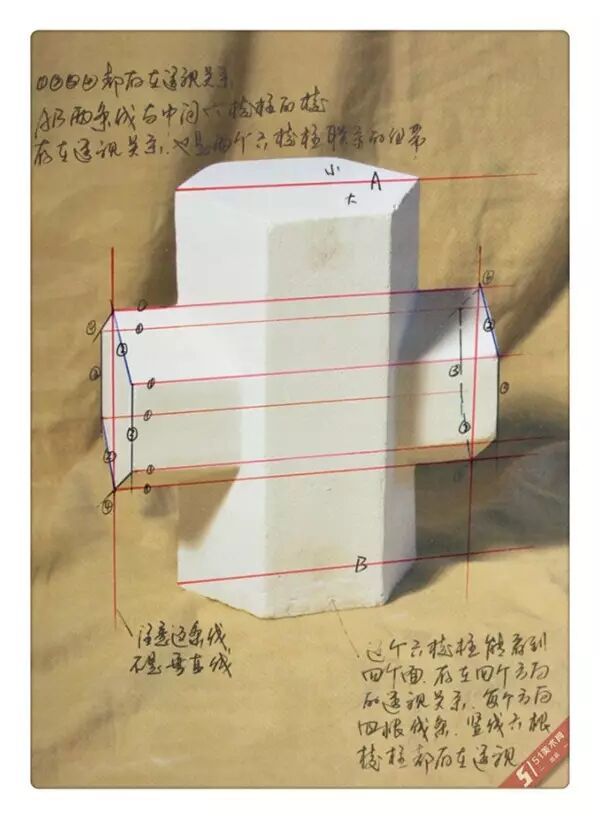 ①②③④都存在透视关系
AB两条线与中间六棱柱的棱
存在透视关系.也是两个六棱柱联系的纽带
小 A
大
④
①
④ ①
②
②
③ ③ ①
③
①
③ ②
② ①
①
④
B
注意这条线
不是垂直线
这个六棱柱能看到
四个面.存在四个方向
的透视关系.每个方向
四根线条.竖线六根
棱柱都存在透视
51美术网